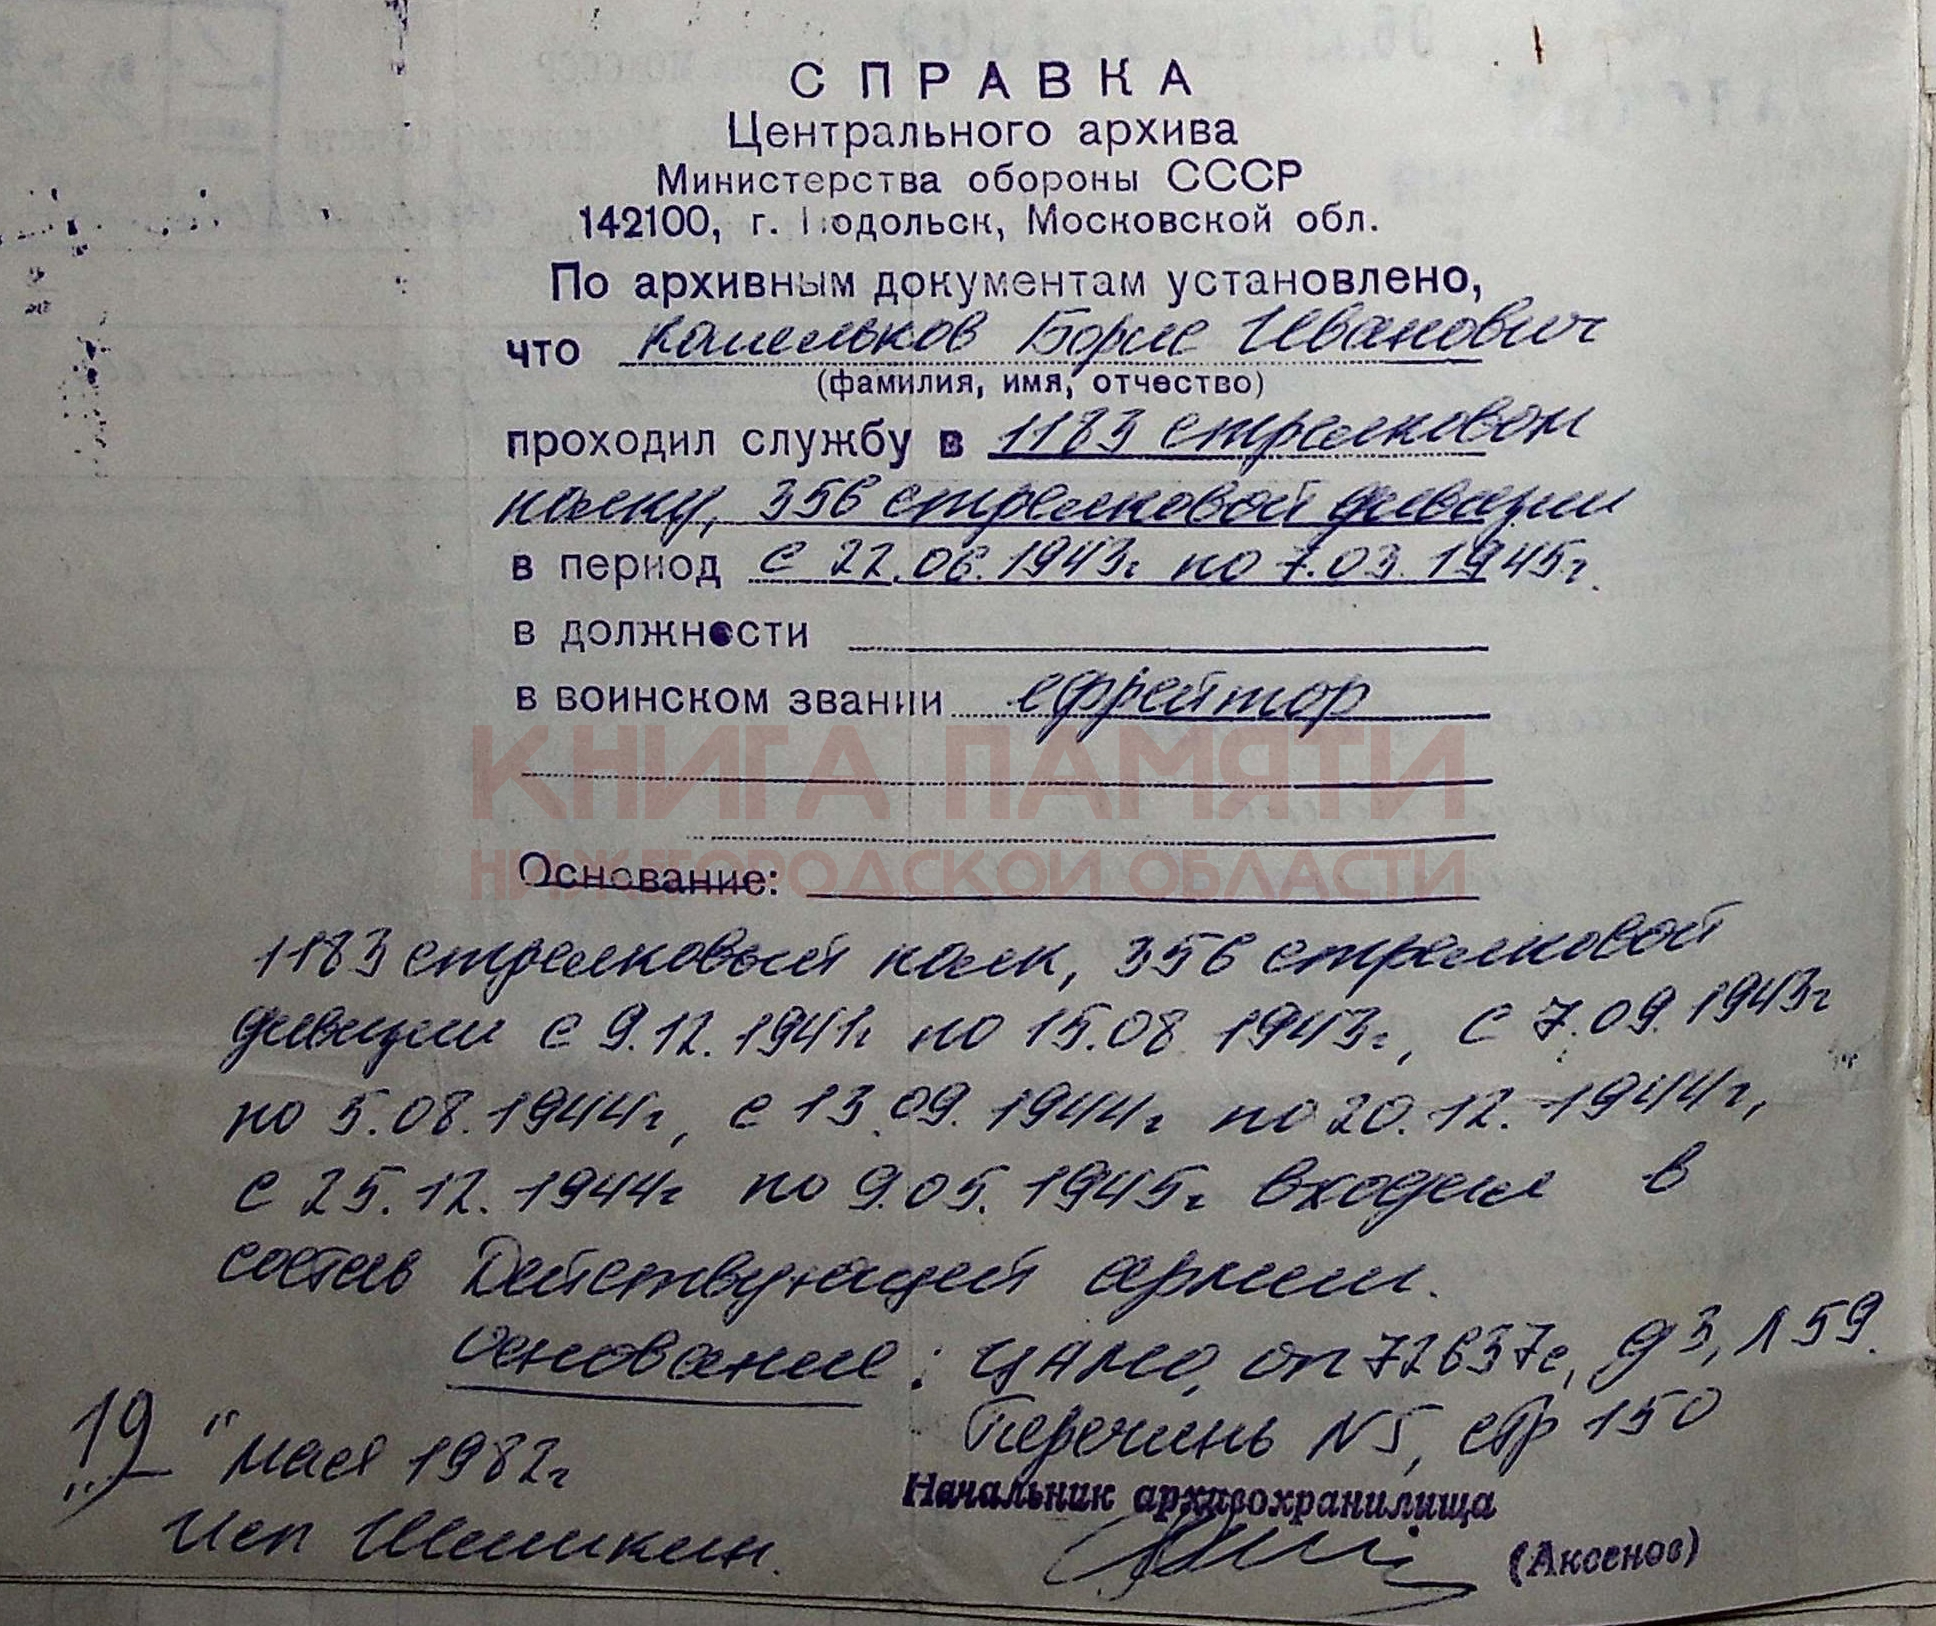 СПРАВКА
Центрального архива
Министерства обороны СССР
142100, г. Подольск, Московской обл.
По архивным документам установлено,
что Капельков Борис Иванович
(фамилия, имя, отчество)
проходил службу в 1183 стрелковом
полку, 356 стрелковой дивизии
в период с 22.06.1943г по 7.03.1945г.
в должности
в воинском звании ефрейтор
КНИГА ПАМЯТИ
НИЖЕГОРОДСКОЙ ОБЛАСТИ
Основание:
1183 стрелковый полк, 356 стрелковой
дивизии с 9.12.1941г по 15.08 1943г, с 7.09.1943г
по 5.08.1944г, с 13.09.1944г по 20.12.1944г,
с 25.12.1944г по 9.05.1945г входил в
состав Действующей армии.
Основание: ЦАМО, оп 72637с, д 3, л 59.
"19" мая 1982г Перечень N5, стр 150
Начальник архивохранилища
Исп Шишкин. (Аксенов)